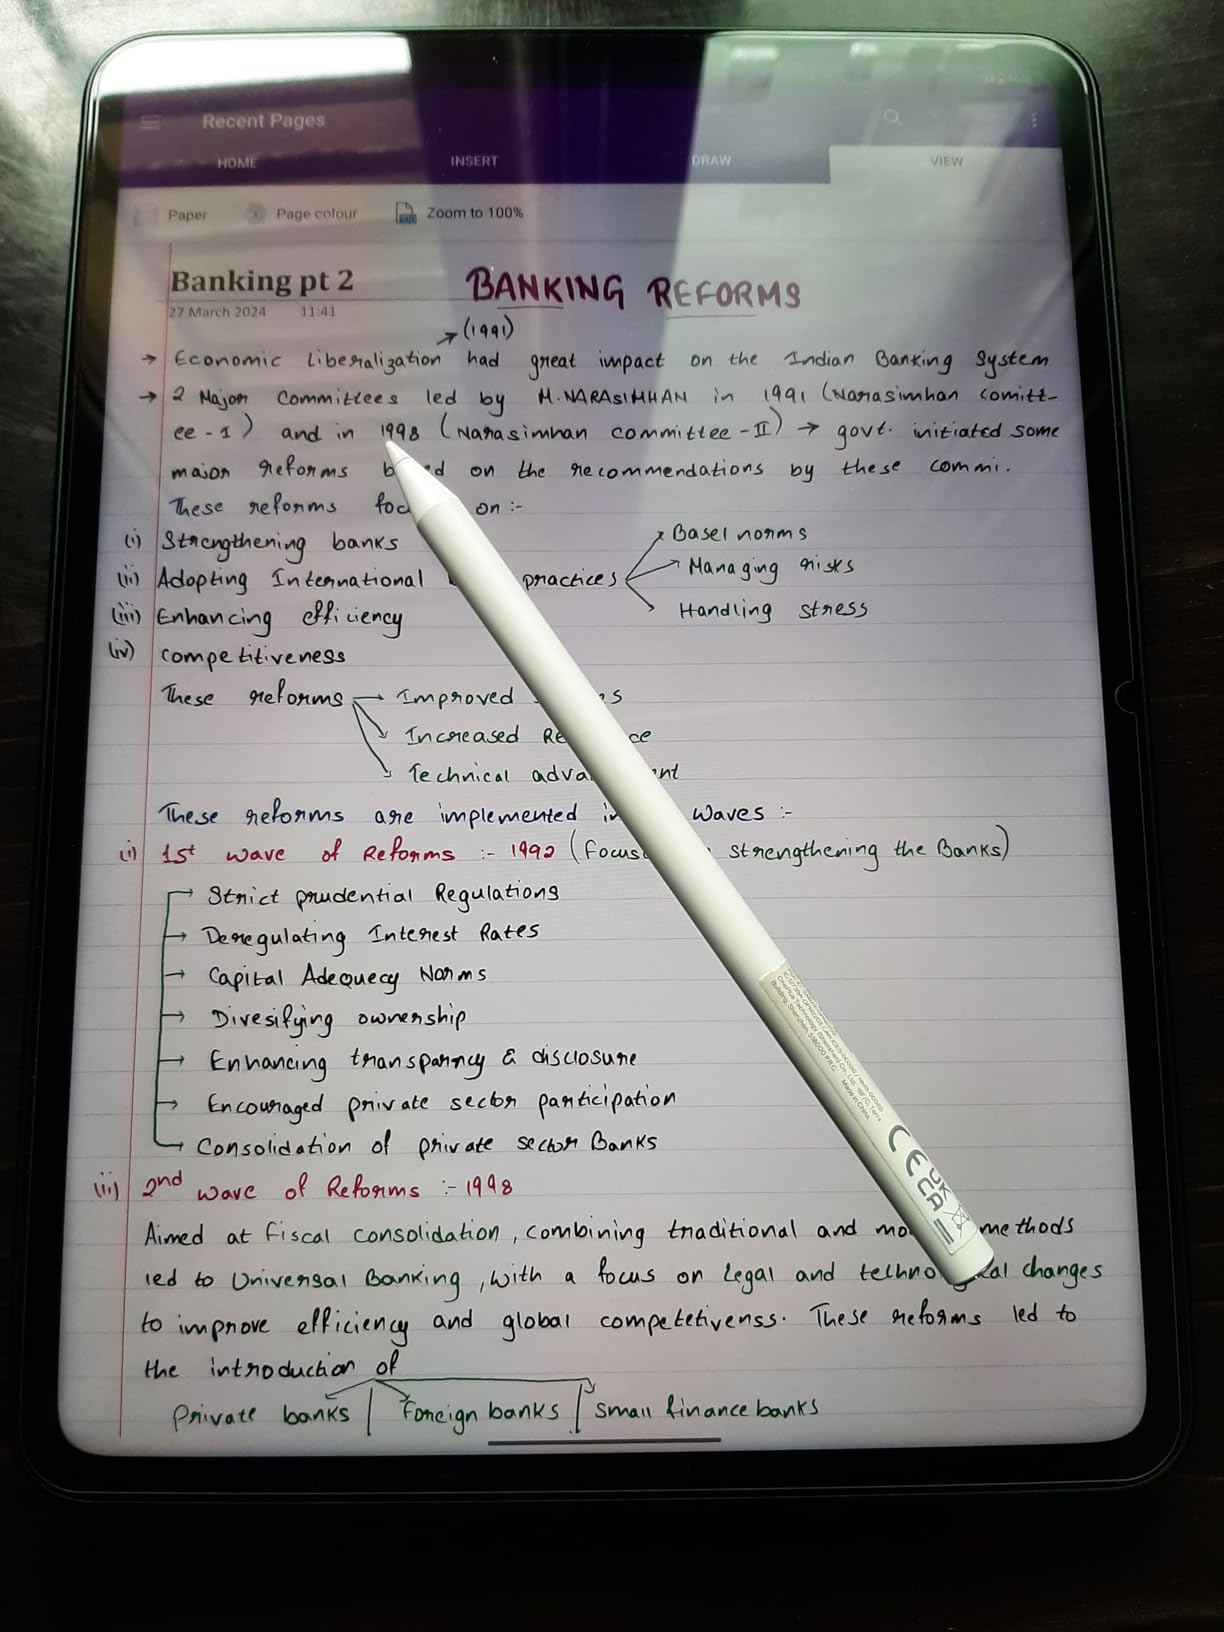 Recent Pages
HOME INSERT DRAW VIEW
Paper Page colour Zoom to 100%
Banking pt 2
BANKING REFORMS
27 March 2024 11:41
→ (1991)
→ Economic liberalization had great impact on the Indian Banking System
→ 2 Major Committees led by M.NARASIMHAN in 1991 (Narasimhan comitt-
ee-I) and in 1998 (Narasimhan committee-II) → govt. initiated some
major reforms on the recommendations by these commi.
These reforms on :-
(i) Strengthening banks
(ii) Adopting International practices
Basel norms
Managing risks
Handling stress
(iii) Enhancing efficiency
(iv) competitiveness
These reforms → Improved
Increased
Technical
These reforms are implemented waves :-
(i) 1st wave of Reforms :- 1992 ( strengthening the Banks)
→ Strict prudential Regulations
→ Deregulating Interest Rates
→ Capital Adequecy Norms
→ Divesifying ownership
→ Enhancing transparncy & disclosure
→ Encouraged private sector participation
→ Consolidation of private sector Banks
(ii) 2nd wave of Reforms :- 1998
Aimed at fiscal consolidation, combining traditional and methods
led to Universal Banking, with a focus on legal and changes
to improve efficiency and global competetivenss. These reforms led to
the introduction of
Private banks | Foreign banks | small finance banks
Made in China
CE
UK
CA